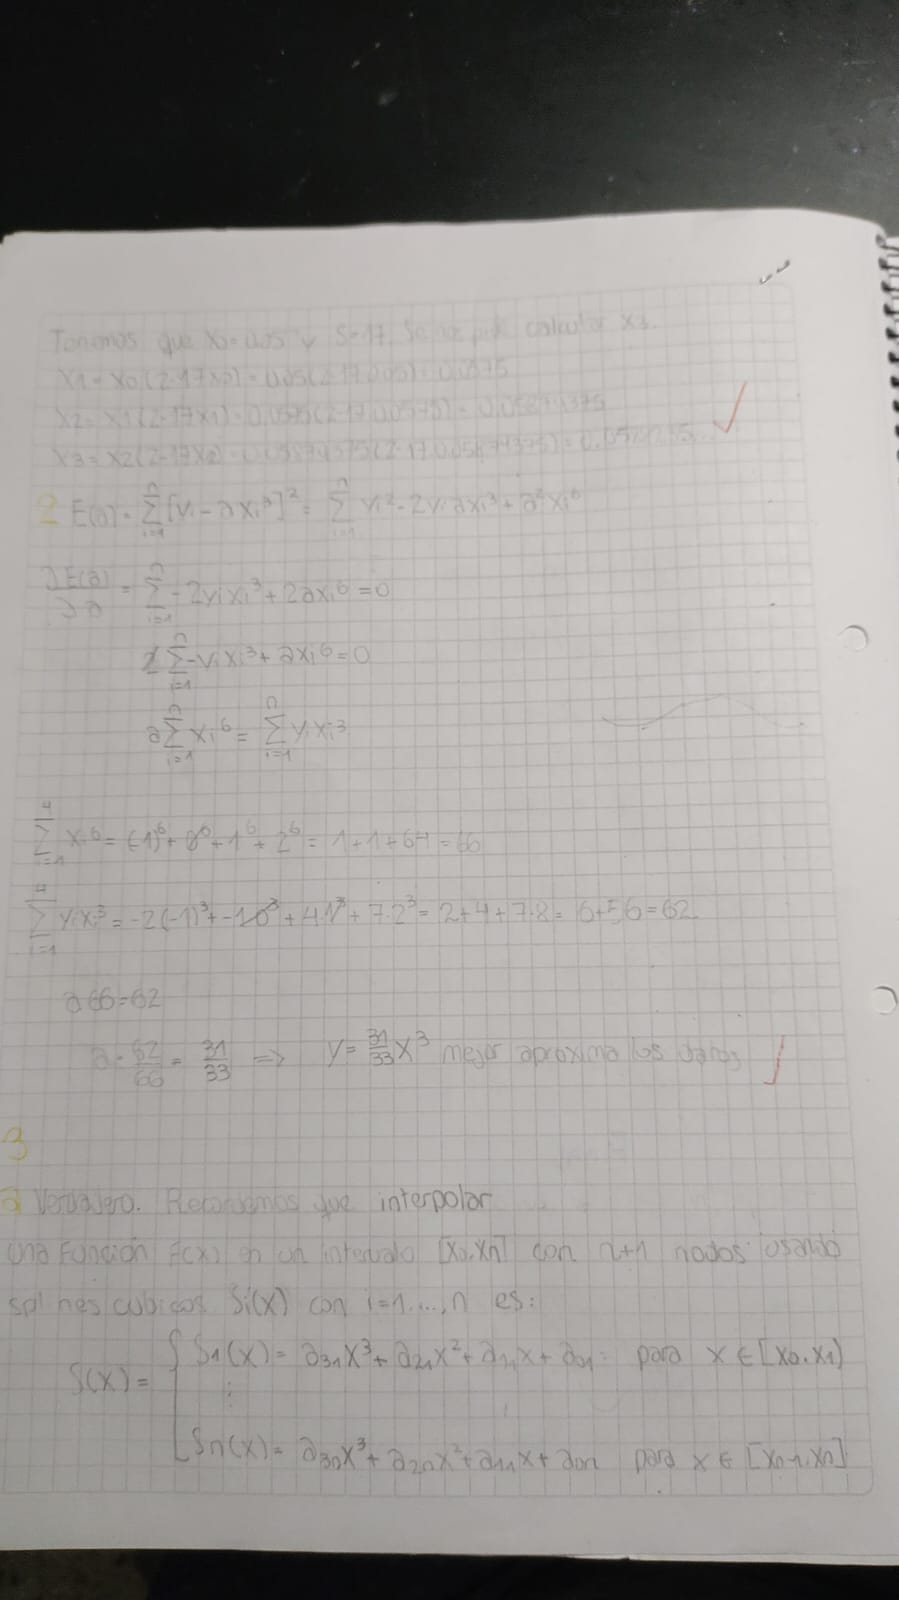 Tenemos que x0=0.05 y S=17. Se nos pide calcular x3.
x1=x0(2-17x0)=0,05(2-17.0,05)=0,0575
x2=x1(2-17x1)=0.0575(2-17.0,0575)=0,05879375
x3=x2(2-17x2)=0.05879375(2-17.0,05879375)=
2 E(a)=∑_{i=1}^{n}[yi-axi³]²=∑_{i=1}^{n} yi²-2yiaxi³+a²xi⁶
∂E(a)/∂a=∑_{i=1}^{n}-2yixi³+2axi⁶=0
2∑_{i=1}^{n}-yixi³+axi⁶=0
a∑_{i=1}^{n}xi⁶=∑_{i=1}^{n}yixi³
∑_{i=1}^{4}xi⁶=(-1)⁶+0⁶+1⁶+2⁶=1+1+64=66
∑_{i=1}^{4}yixi³=-2(-1)³+-1·0³+4·1³+7·2³=2+4+7·8=6+56=62
a66=62
a=62/66=31/33 => y=31/33x³ mejor aproxima los datos
3
a Verdadero. Recordemos que interpolar
una función F(x) en un intervalo [x0,xn] con n+1 nodos usando
splines cubicos Si(x) con i=1...,n es:
S(x)={S1(x)=a31x³+a21x²+a11x+a01 para x∈[x0,x1)
⋮
Sn(x)=a3nx³+a2nx²+a1nx+a0n para x∈[xn-1,xn]